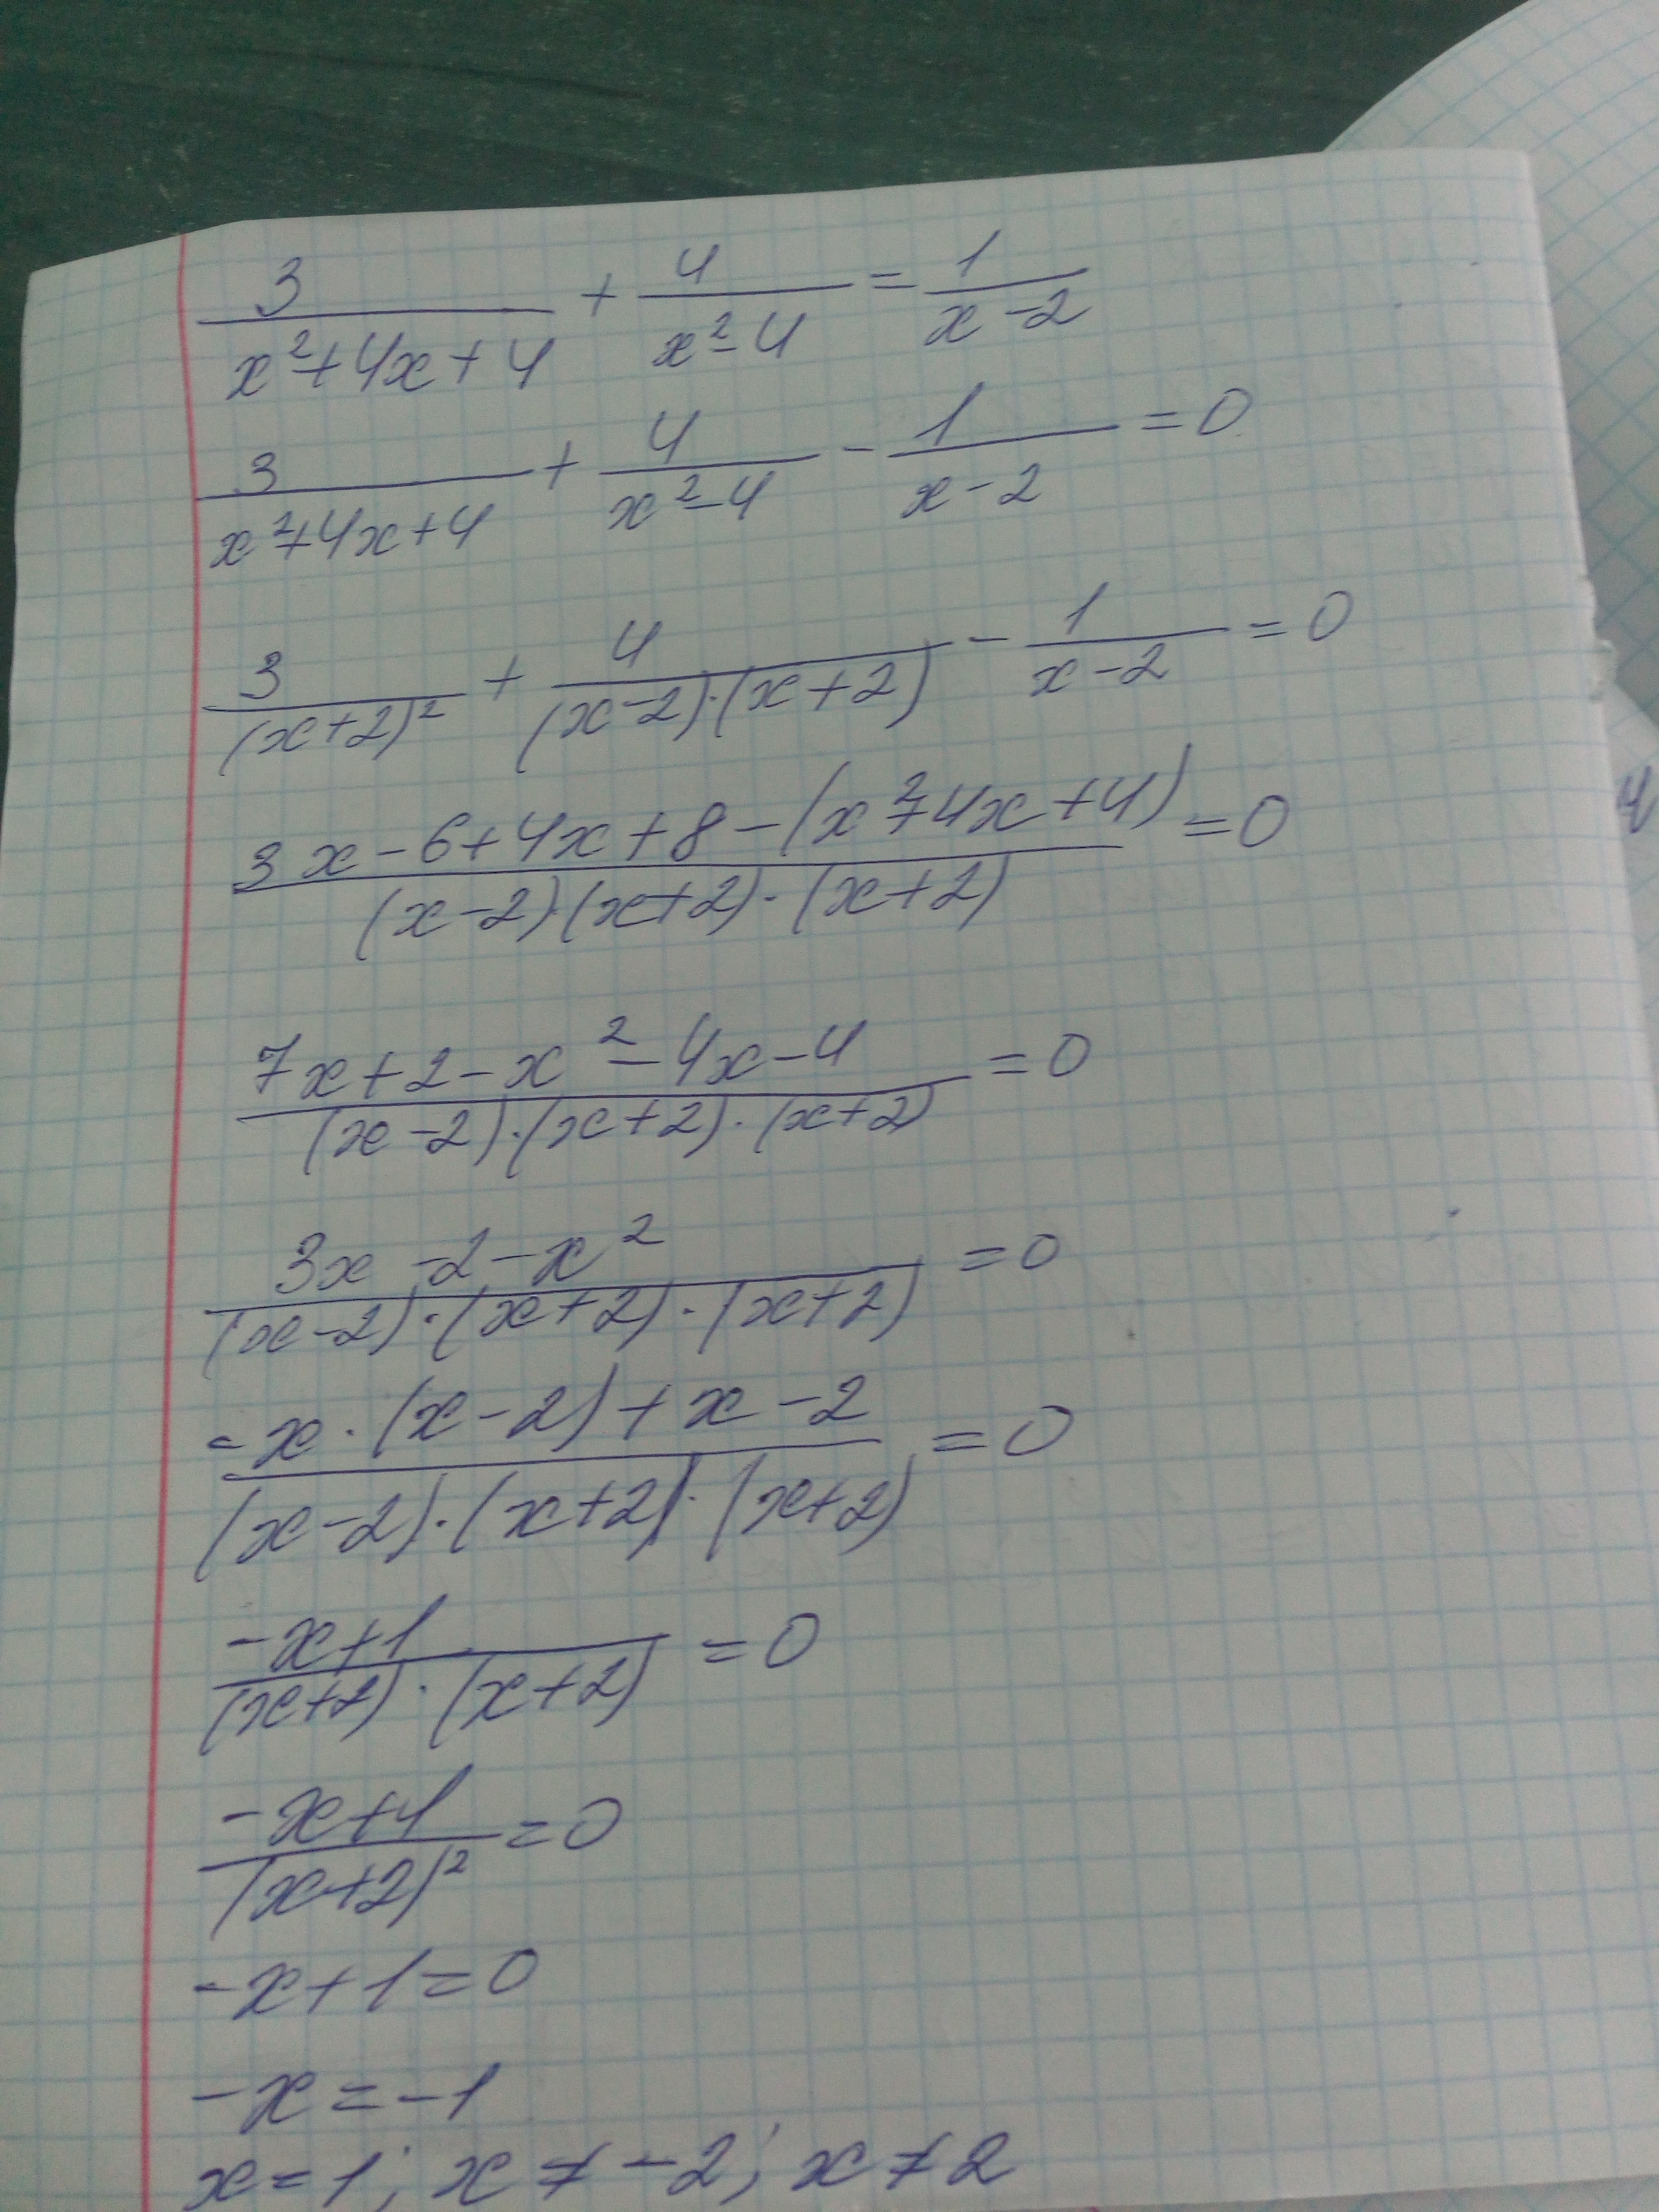 3/(x²+4x+4) + 4/(x²-4) = 1/(x-2)
3/(x²+4x+4) + 4/(x²-4) - 1/(x-2) = 0
3/(x+2)² + 4/((x-2)·(x+2)) - 1/(x-2) = 0
(3x-6+4x+8-(x²+4x+4))/((x-2)·(x+2)·(x+2)) = 0
(7x+2-x²-4x-4)/((x-2)·(x+2)·(x+2)) = 0
(3x-2-x²)/((x-2)·(x+2)·(x+2)) = 0
(-x·(x-2)+x-2)/((x-2)·(x+2)·(x+2)) = 0
(-x+1)/((x+2)·(x+2)) = 0
(-x+1)/(x+2)² = 0
-x+1=0
-x=-1
x=1; x≠-2; x≠2